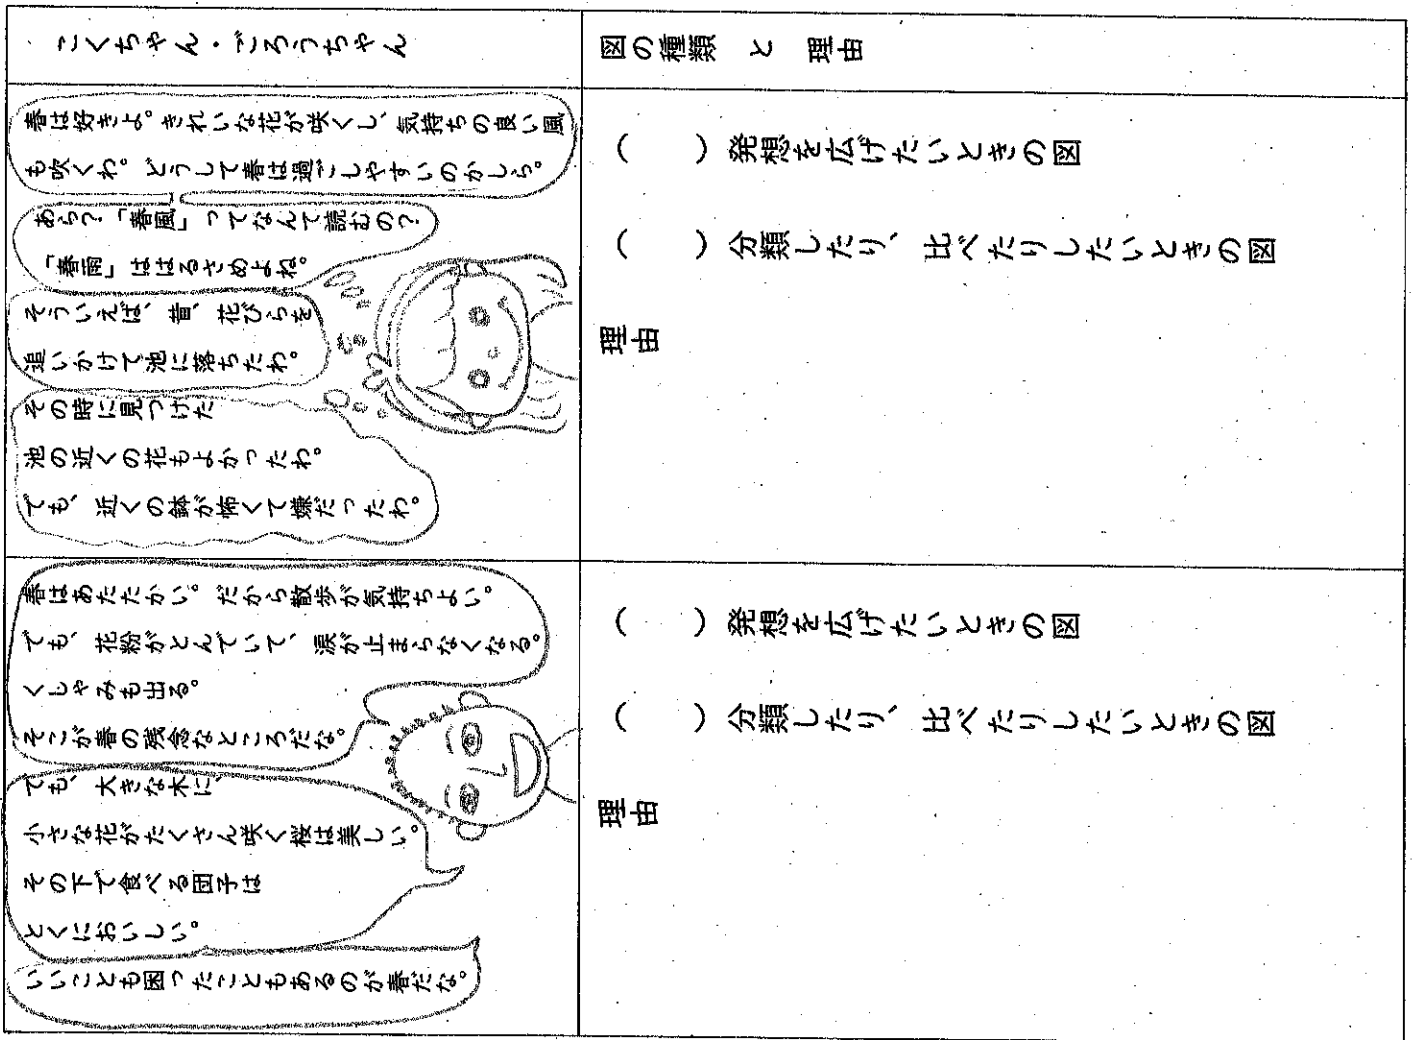 こくちゃん・ごろうちゃん
図の種類 と 理由
春は好きよ。きれいな花が咲くし、気持ちの良い風
も吹くわ。どうして春は過ごしやすいのかしら。
あら？「春風」ってなんて読むの？
「春雨」ははるさめよね。
そういえば、昔、花びらを
追いかけて池に落ちたわ。
その時に見つけた
池の近くの花もよかったわ。
でも、近くの鉢が怖くて嫌だったわ。
（　　）発想を広げたいときの図
（　　）分類したり、比べたりしたいときの図
理由
春はあたたかい。だから散歩が気持ちよい。
でも、花粉がとんでいて、涙が止まらなくなる。
くしゃみも出る。
そこが春の残念なところだな。
でも、大きな木に、
小さな花がたくさん咲く桜は美しい。
その下で食べる団子は
とくにおいしい。
いいことも困ったこともあるのが春だな。
（　　）発想を広げたいときの図
（　　）分類したり、比べたりしたいときの図
理由